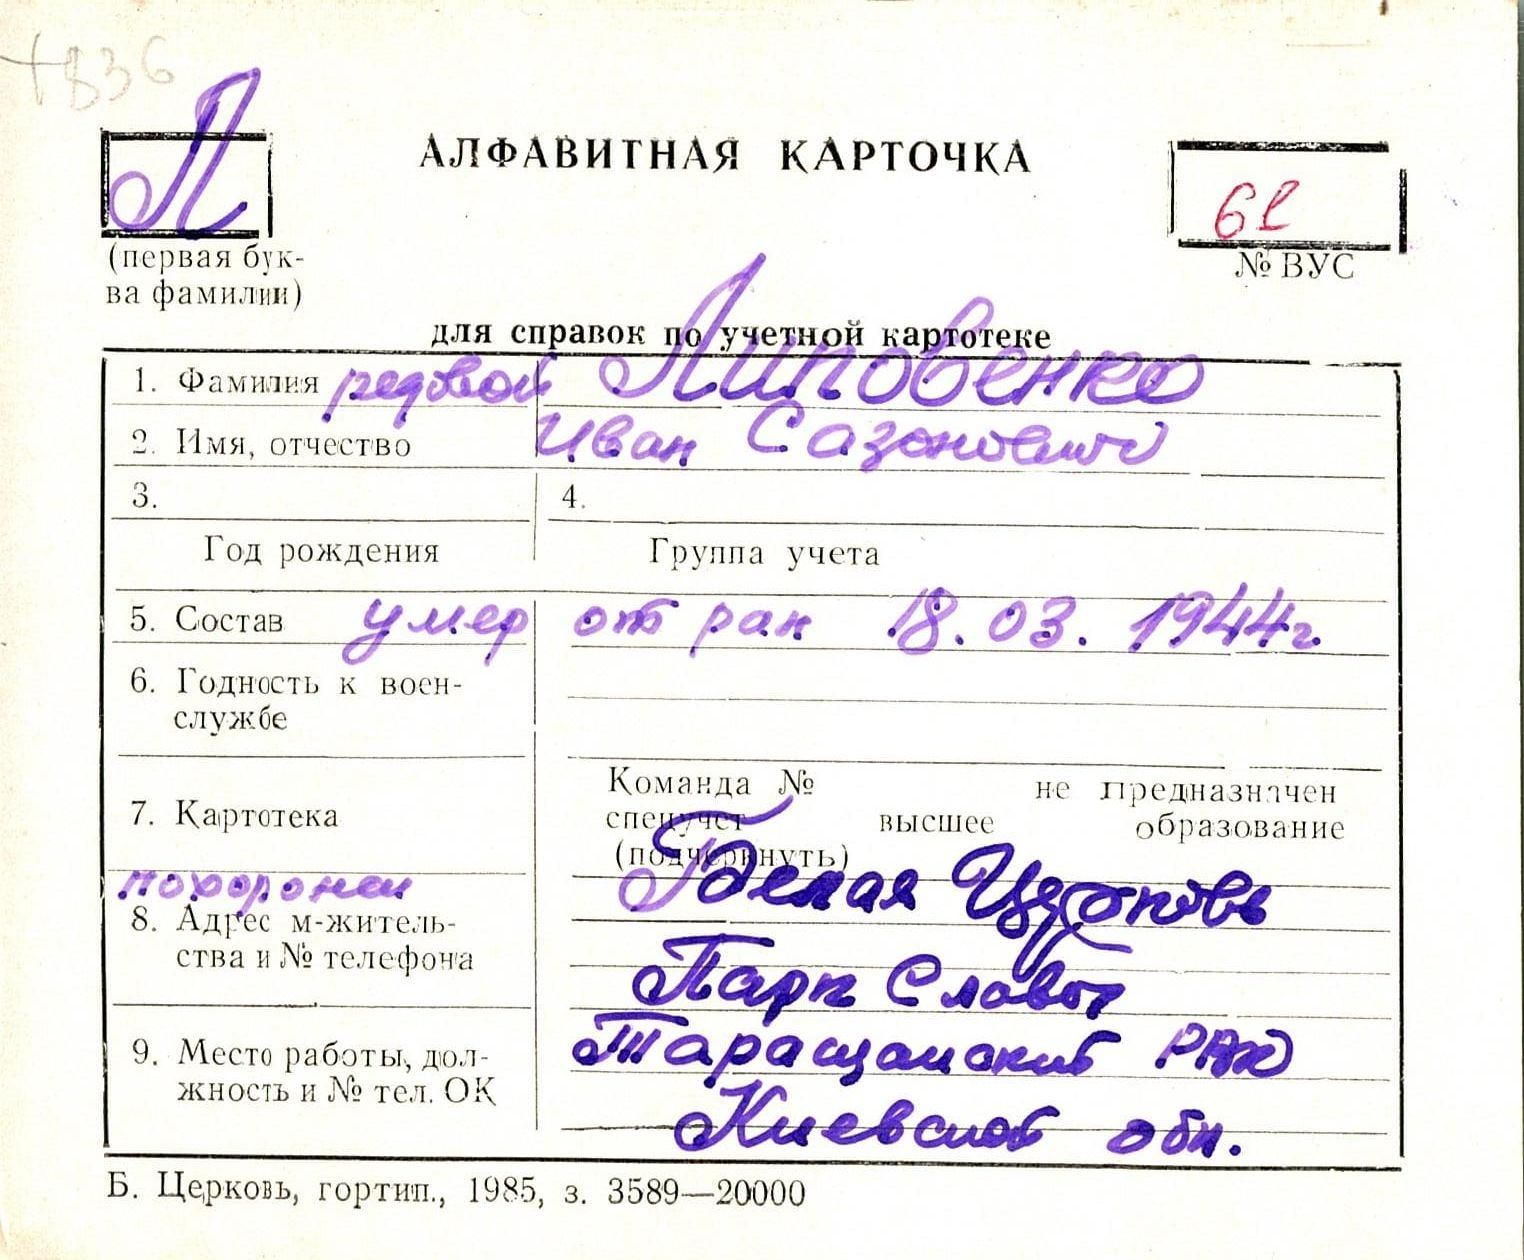 +836
Л
АЛФАВИТНАЯ КАРТОЧКА
62
(первая бук-
ва фамилии)
№ ВУС
для справок по учетной картотеке
1. Фамилия рядовой Липовенко
2. Имя, отчество Иван Сазонович
3. 4.
Год рождения Группа учета
5. Состав умер от ран 18.03.1944г.
6. Годность к воен-
службе
7. Картотека
Команда № не предназначен
спецучет высшее образование
(подчеркнуть)
похоронен Белая Церковь
8. Адрес м-житель-
ства и № телефона
Парк Славы
9. Место работы, дол-
жность и № тел. ОК
Таращанский
Киевской обл.
Б. Церковь, гортип., 1985, з. 3589—20000